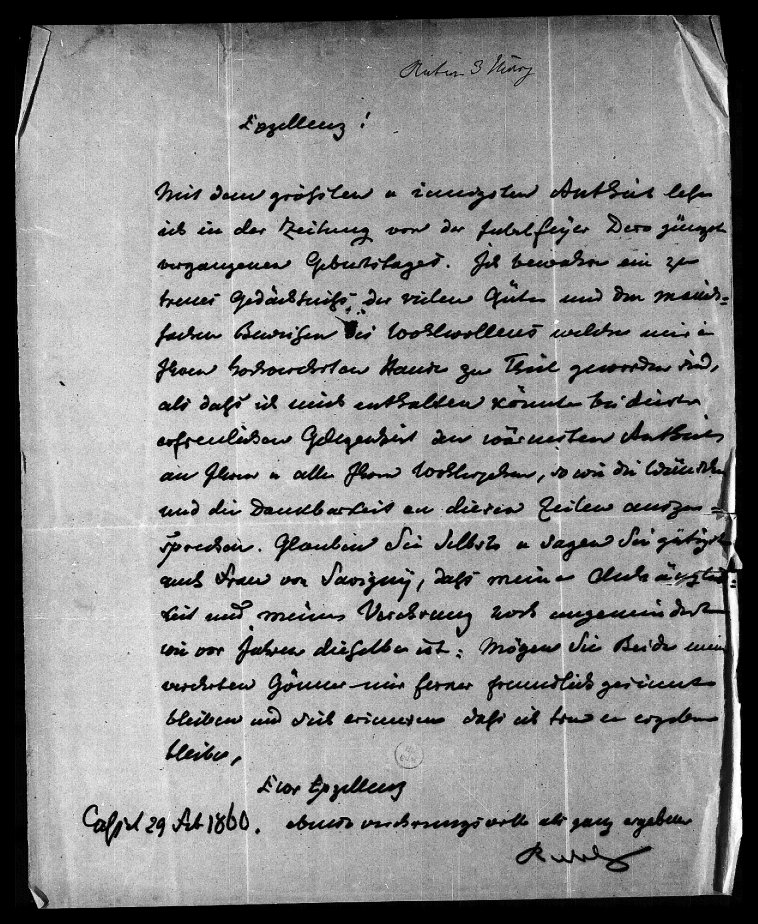 3 März
Exzellenz!
Mit dem größten u innigsten Antheil lese
ich in der Zeitung von der Jubelfeyer Dero jüngst
vergangenen Geburtstages. Ich bewahre ein zu
treues Gedächtniß der vielen Güte und den mannich=
fachen Beweisen des Wohlwollens welche mir in
Ihrem hochverehrten Hause zu Theil geworden sind,
als daß ich mich enthalten könnte bei dieser
erfreulichen Gelegenheit den wärmsten Antheil
an Ihrem u aller Ihren Wohlergehen, so wie die Wünsche
und die Dankbarkeit in diesen Zeilen auszu=
sprechen. Glauben Sie Selbst u sagen Sie gütigst
auch Frau von Savigny, daß meine Anhänglich=
keit und meine Verehrung noch ungemindert
wie vor Jahren dieselbe ist: Mögen Sie Beide mein
verehrten Gönner mir ferner freundlich gesinnt
bleiben und sich erinnern daß ich treu er ergeben
bleibe,
Euer Exzellenz
Cassel 29 Feb 1860. verehrungsvoll als ganz ergebener
Ruhl